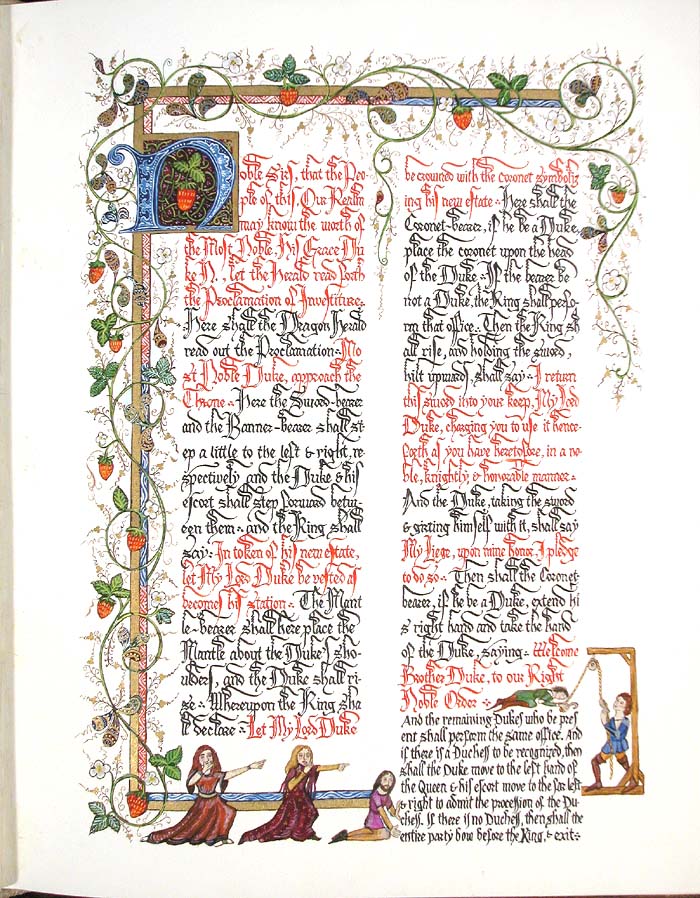 Noble Sirs, that the Peo-
ple of this, Our Realm
may know the worth of
the Most Noble, His Grace Du
ke N., let the Herald read forth
the Proclamation of Investiture:
Here shall the Dragon Herald
read out the Proclamation: Mo
st Noble Duke, approach the
Throne: Here the Sword-bearer
and the Banner-bearer shall st
ep a little to the left & right, re,
spectively and the Duke & his
escort shall step forward betw-
een them: and the King shall
say: In token of his new estate,
let My Lord Duke be vested as
becomes his station: The Mant
le-bearer shall here place the
Mantle about the Duke's sho-
ulders, and the Duke shall ri-
se: Whereupon the King sha
ll declare: Let My Lord Duke
be crowned with the coronet symboliz
ing his new estate: Here shall the
Coronet-bearer, if he be a Duke,
place the coronet upon the head
of the Duke: If the bearer be
not a Duke, the King shall perfo-
rm that office: Then the King sh
all rise, and holding the sword,
hilt upwards, shall say: I return
this sword into your keep, My Lord
Duke, charging you to use it hence-
forth as you have heretofore, in a no-
ble, knightly, & honorable manner:
And the Duke, taking the sword
& girting himself with it, shall say
My Liege, upon mine honor, I pledge
to do so: Then shall the Coronet-
bearer, if he be a Duke, extend hi
s right hand and take the hand
of the Duke, saying: Welcome
Brother Duke, to our Right
Noble Order:
And the remaining Dukes who be pres
ent shall perform the same office. And
if there is a Duchess to be recognized, then
shall the Duke move to the left hand of
the Queen & his escort move to the far left
& right to admit the procession of the Du-
chess. If there is no Duchess, then shall the
entire party bow before the King, & exit: